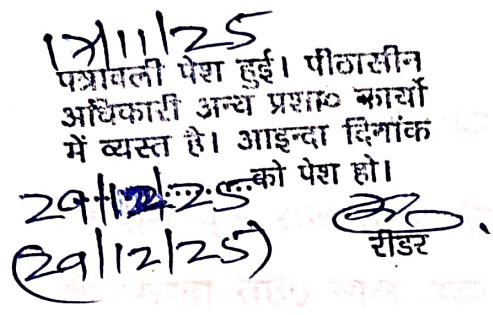 17/11/25
पत्रावली पेश हुई। पीठासीन
अधिकारी अन्य प्रशा० कार्यो
में व्यस्त है। आइन्दा दिनांक
29/12/25 को पेश हो।
(29/12/25)
रीडर